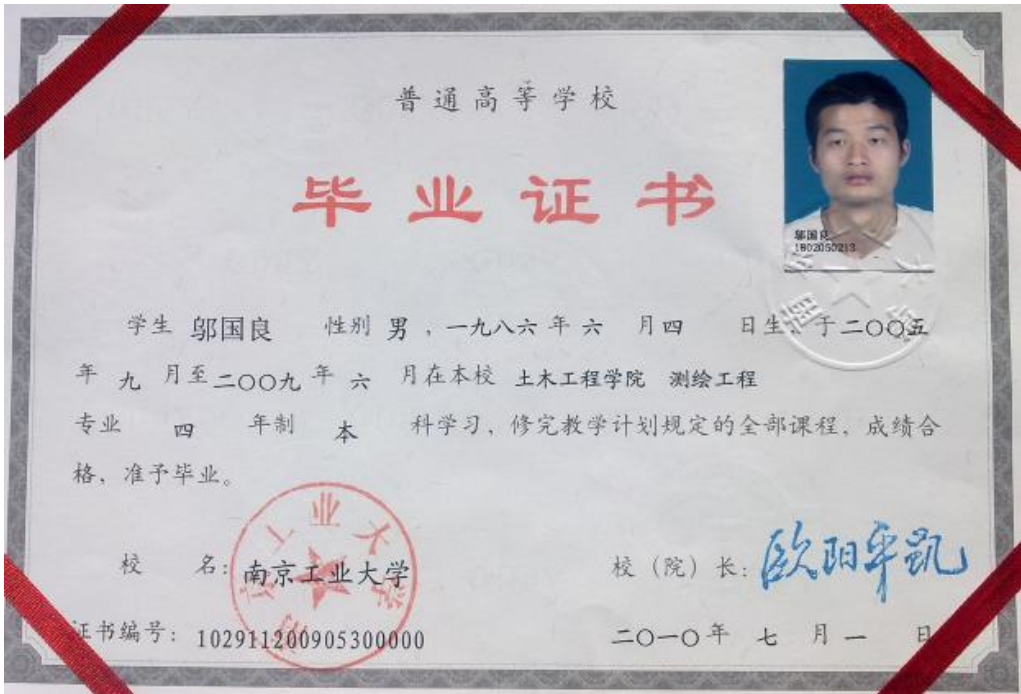 普通高等学校
毕业证书
邬国良
1802050213
学生 邬国良 性别 男 ，一九八六 年 六 月 四 日生，于二〇〇五
年 九 月至 二〇〇九 年 六 月在本校 土木工程学院 测绘工程
专业 四 年制 本 科学习，修完教学计划规定的全部课程，成绩合
格，准予毕业。
校 名：南京工业大学
校（院）长：欧阳平凯
证书编号：102911200905300000
二〇一〇 年 七 月 一 日